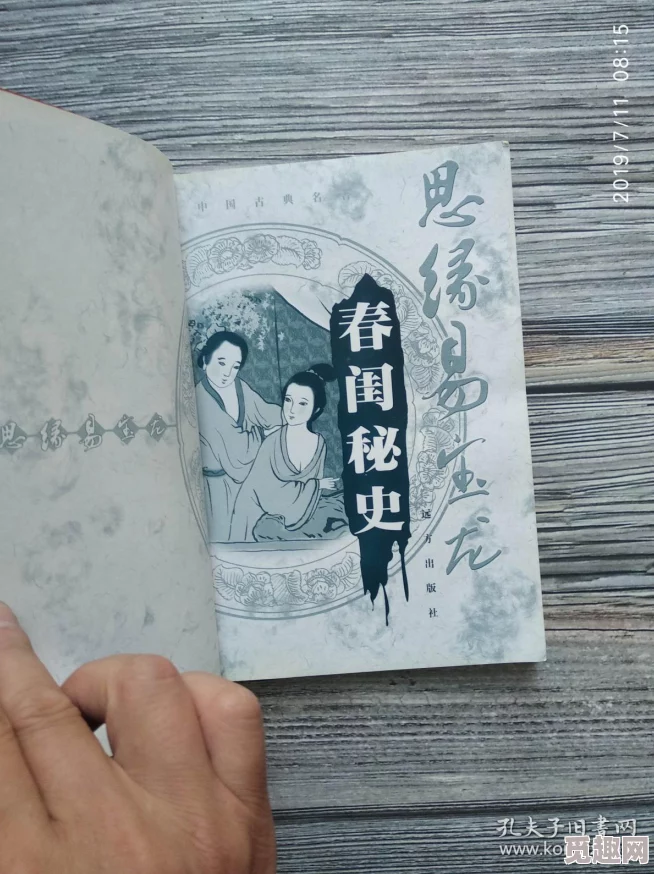 2019/7/11 08:15
中国古典名
思缘易宝龙
春闺秘史
远方出版社
思缘易宝龙
孔夫子旧书网
觅趣网